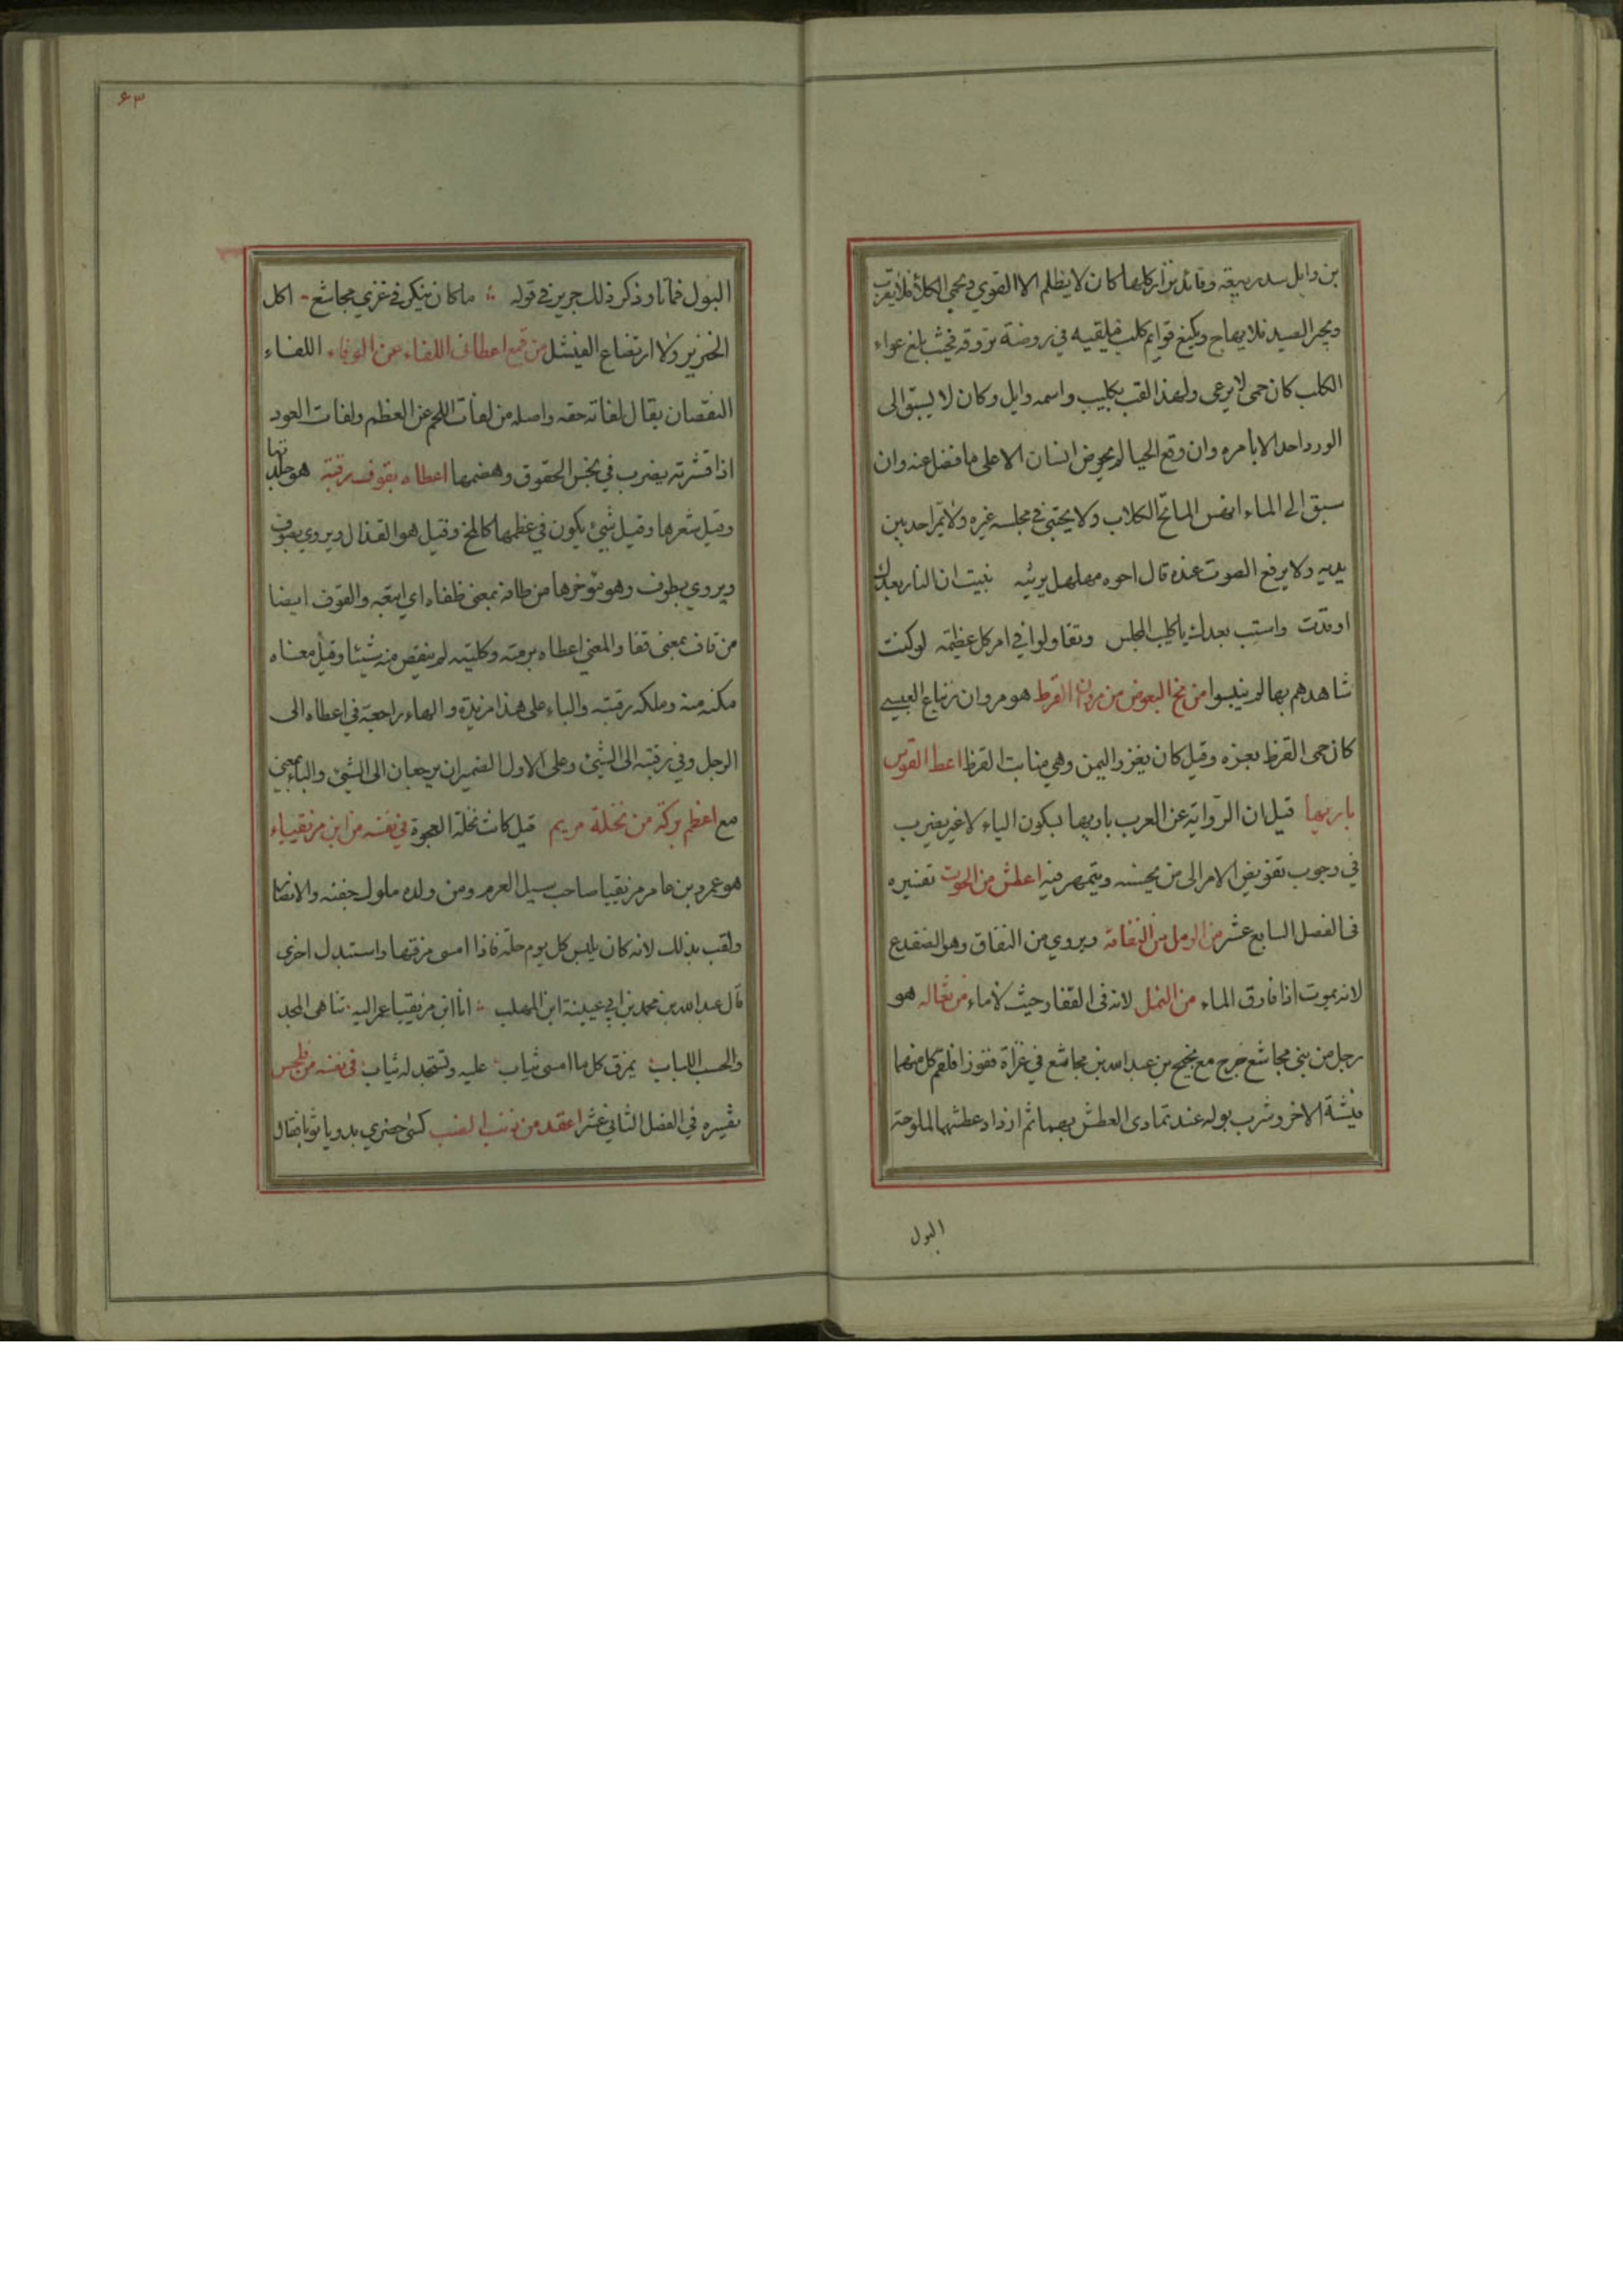 بن وايل سد ربيعة وقائد نزار كلها كان لا يظلم الا القوي ويحمي الكلأ فلا يقرب
ويجير الصيد فلا يهاج ويكنع قوايم كلب فيلقيه في روضة تروقه فحيث بلغ عواء
الكلب كان حمى لا يرعى ولهذا لقب بكليب واسمه وايل وكان لا يسبق الى
الورد احد الا بامره وان وقع الحيا لم يحوض انسان الا على ما فضل عنه وان
سبق الى الماء المايح الكلاب ولا يحتبى في مجلسه غيره ولا يمر احد بين
يديه ولا يرفع الصوت عنده قال اخوه مهلهل يرثيه نبيت ان النار بعدك
اوقدت واستب بعدك يا كليب المجلس وتقاولوا في امر كل عظيمة لو كنت
شاهدهم بها لم ينبسوا من مخ البعوض من مروان القرظ هو مروان زنباع العبسي
كان حمى القرظ بعزه وقيل كان يغزو اليمن وهي منابت القرظ اعط القوس
باريها قيل ان الرواية عن العرب باريها بكون الياء لا غير يضرب
في وجوب تفويض الامر الى من يحسنه ويتمهر فيه اعطش من الحوت تفسيره
في الفصل السابع عشر من الرمل من النقاقة ويروي من النقاق وهو الضفدع
لانه يموت اذا فارق الماء من النمل لانه في القفار حيث لا ماء من ثعاله هو
رجل من بني مجاشع خرج مع نجيح بن عبد الله بن مجاشع في غزاة ففوزا فلقم كل منهما
فيشة الاخر وشرب بوله عند تمادى العطش بهما ثم ازداد عطشهما لملوحة
البول
۶۳
البول فماتا وذكر ذلك جرير في قوله ما كان ينكر في غزي مجاشع اكل
الخزير ولا ارتضاع الفيشل من قمع اعطاني اللفاء عن الوفاء اللفاء
النقصان يقال لفاته حقه واصله من لفات اللحم عن العظم ولفات العود
اذا قشرته يضرب في بخس الحقوق وهضمها اعطاه بقوف رقبته هو جلدتها
وقيل شعرها وقيل شيئ يكون في عظمها كالمخ وقيل هو القذال ويروي بصوف
ويروي بطوف وهو مؤخرها من طافه بمعنى ظلفاه اي اتبعه والقوف ايضا
من قاف بمعنى قفا والمعنى اعطاه برمته وكليته لم ينقص منه شيئا وقيل معناه
مكنه منه وملكه رقبته والباء على هذا مزيدة والهاء راجعة في اعطاه الى
الرجل وفي رقبته الى الشيئ وعلى الاول الضميران يرجعان الى الشيئ والباء بمعنى
مع اعظم بركة من نخلة مريم قيل كانت نخلة العجوة في نفسه من ابن مزيقياء
هو عمرو بن عامر مزيقيا صاحب سيل العرم ومن ولده ملوك جفنه والانصار
ولقب بذلك لانه كان يلبس كل يوم حلة فاذا امسى مزقها واستبدل اخرى
قال عبد الله بن محمد بن ابي عيينة ابن المهلب انا ابن مزيقيا عمر اليه تناهى المجد
والحسب اللباب يمزق كل ما امسى ثياب عليه وتستجد له ثياب في نفسه من فلحس
تفسيره في الفصل الثاني عشر اعقد من ذنب الضب كسى حضري بدويا ثوبا فقال